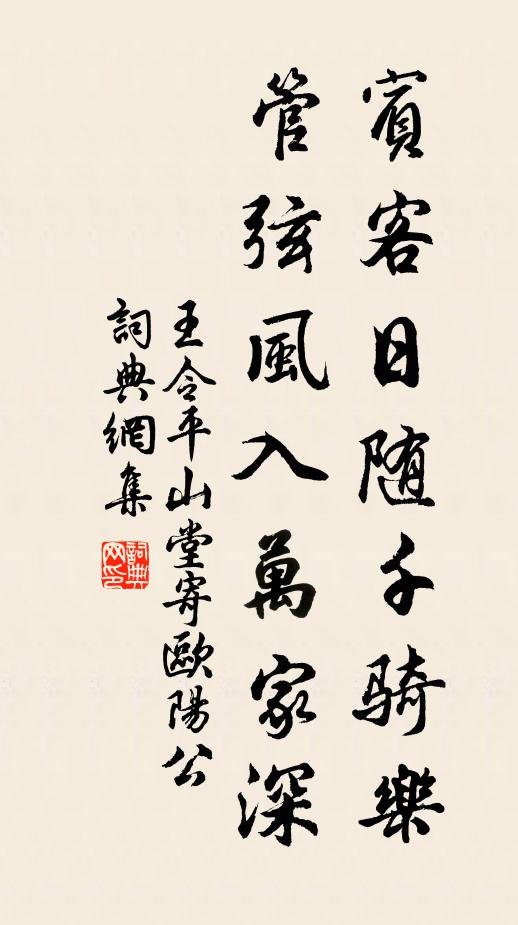 賓客日随千騎樂
管弦風入萬家深
王令平山堂寄歐陽公
詞典網集
詞典网印